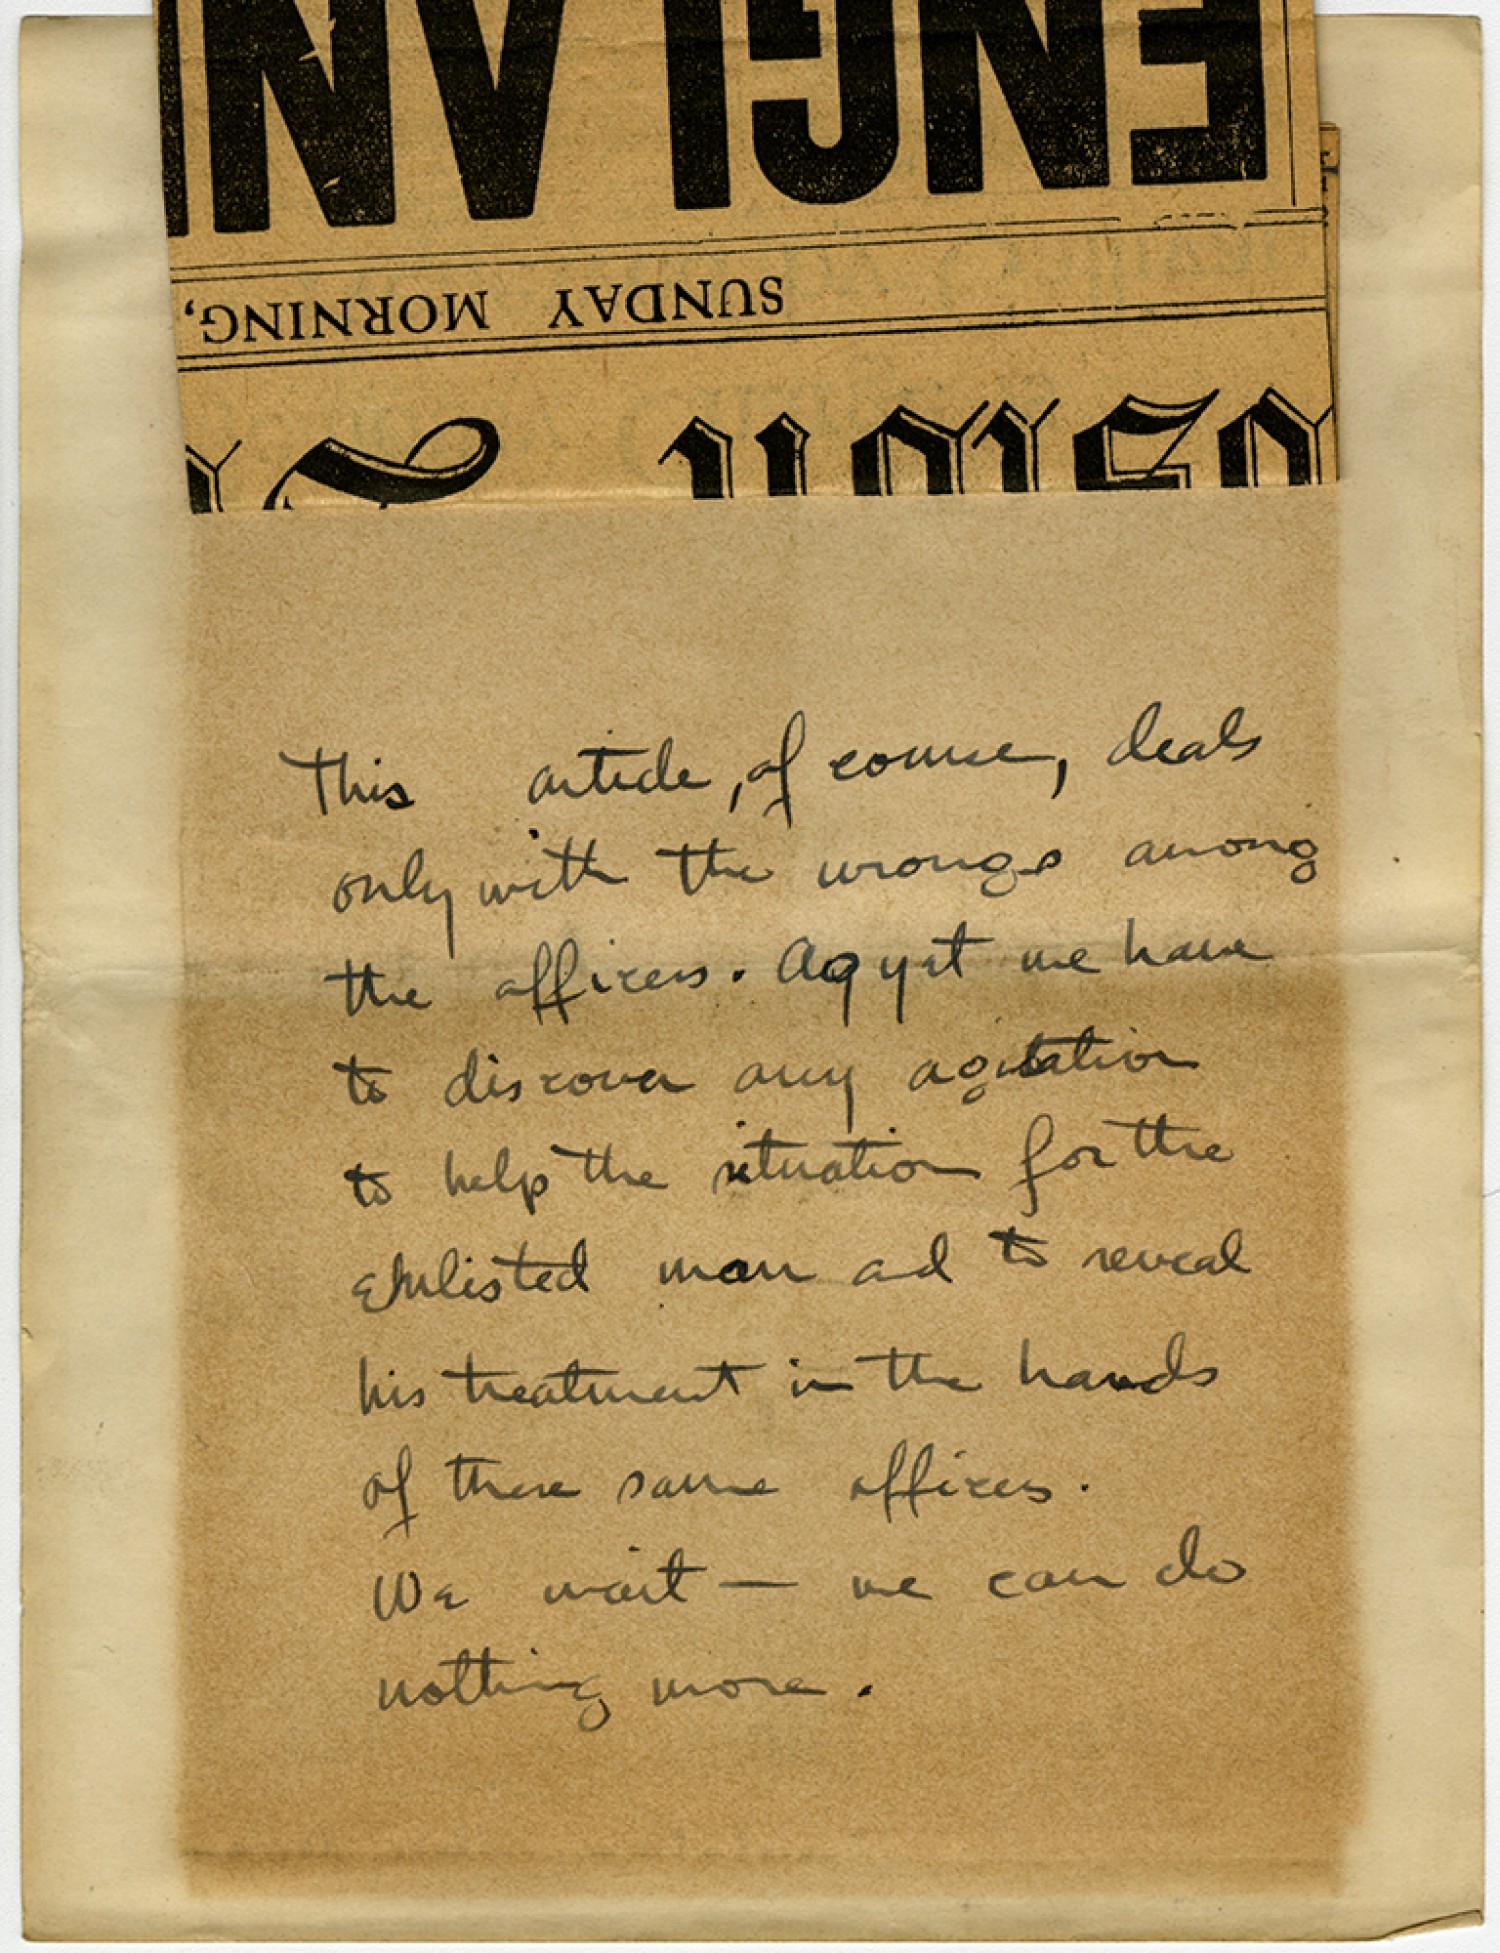 ENGLAN
SUNDAY MORNING,
This article, of course, deals
only with the wrongs among
the officers. As yet we have
to discover any agitation
to help the situation for the
Enlisted man and to reveal
his treatment in the hands
of these same officers.
We wait — we can do
nothing more.